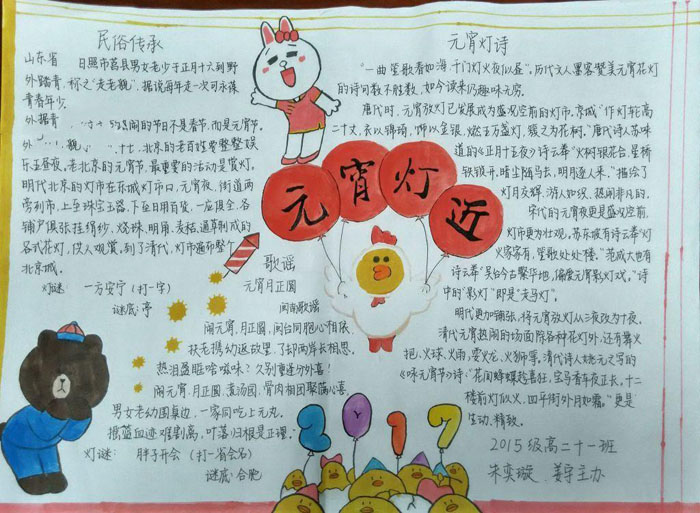 民俗传承
山东省 日照市莒县男女老少于正月十六到野
外踏青,称之"走老貌"。据说每年走一次可永葆
青春年少。
外据 的最闹的节日不是春节,而是元宵节。
外 北京的老百姓常整整娱
乐五昼夜。老北京的元宵节,最重要的活动是赏灯。
明代北京的灯市在东城灯市口,元宵夜,街道两
旁列市,上至珠宝玉器,下至日用百货,一应俱全。各
铺户俱张挂绢纱、烧珠、明角、麦秸、通草制成的
各式花灯,供人观赏,到了清代,灯市遍布整个
北京城。
灯谜 一方安宁(打一字)
谜底:亭
歌谣
元宵月正圆
闽南歌谣
闹元宵,月正圆,闽台同胞心相依,
扶老携幼返故里,了却两岸长相思。
热泪盈眶啥滋味?久别重逢分外喜!
闹元宵,月正圆,煮汤园,骨肉相团聚满心喜,
男女老幼围桌边,一家同吃上元丸。
摇篮血迹难割离,叶落归根是正理。
灯谜: 胖子开会(打一省会名)
谜底:合肥
元宵灯近
元宵灯诗
"一曲笙歌春如海,千门灯火夜似昼"。历代文人墨客赞美元宵花灯
的诗句数不胜数,如今读来仍趣味无穷。
唐代时,元宵放灯已发展成为盛况空前的灯市,京城"作灯轮高
二十丈,衣以锦绮,饰以金银,燃五万盏灯,簇之为花树。"唐代诗人苏味
道的《正月十五夜》诗云:"火树银花合,星桥
铁锁开。暗尘随马去,明月逐人来。"描绘了
灯月交辉,游人如织,热闹非凡的,
宋代的元宵夜更是盛况空前,
灯市更为壮观。苏东坡有诗云:"灯
火家家有,笙歌处处楼。"范成大也有
诗云:"吴台今古繁华地,偏爱元宵影灯戏。"诗
中的"影灯"即是"走马灯"。
明代更加铺张,将元宵放灯从三夜改为十夜。
清代元宵热闹的场面除各种花灯外,还有舞火
把、火球、火雨,耍火龙、火狮等,清代诗人姚元之写的
《咏元宵节》诗:"花间蜂蝶趁喜狂,宝马香车夜正长。十二
楼前灯似火,四平街外月如霜。"更是
生动、精致。
2017
2015级高二十一班
朱奕璇 姜宇主办